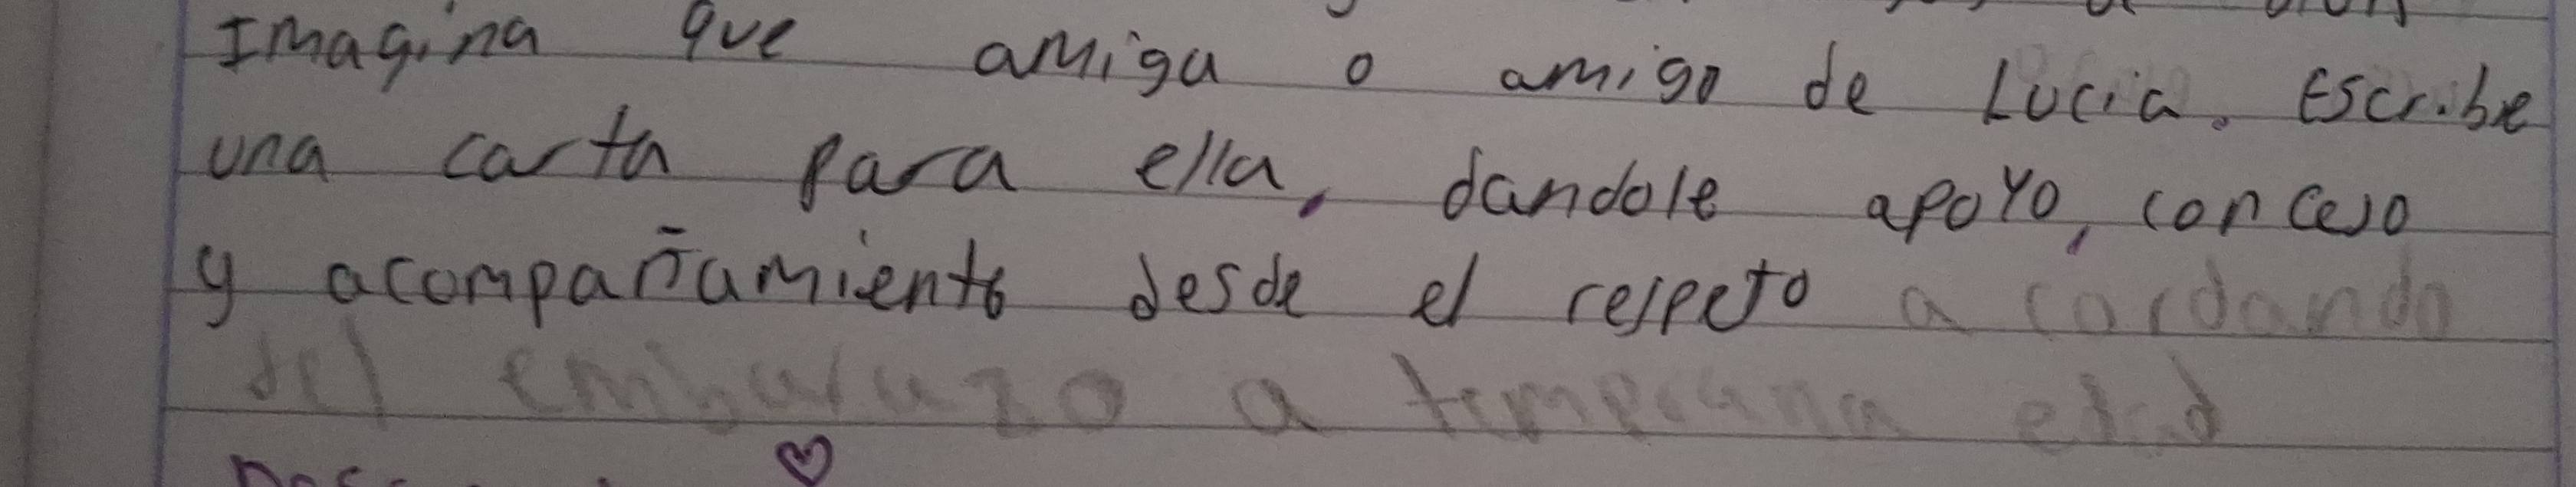 Imagina que amiga o amigo de Lucia. Escribe
una carta para ella, dandole apoyo, concejo
y acompañamiento desde el respeto a cordando
del embarazo a temprana edad